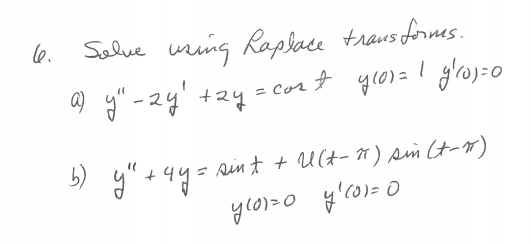 6. Solve using Laplace transforms.
a) y" - 2y' + 2y = cos t y(0) = 1 y'(0) = 0
b) y" + 4y = sin t + U(t-π) sin(t-π)
y(0) = 0 y'(0) = 0